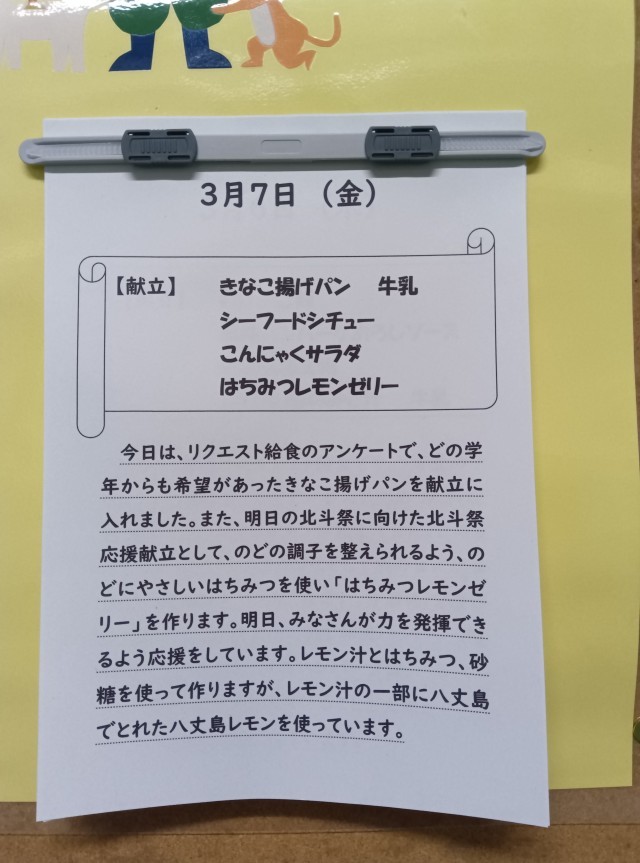 3月7日 （金）
【献立】 きなこ揚げパン 牛乳
シーフードシチュー
こんにゃくサラダ
はちみつレモンゼリー
今日は、リクエスト給食のアンケートで、どの学
年からも希望があったきなこ揚げパンを献立に
入れました。また、明日の北斗祭に向けた北斗祭
応援献立として、のどの調子を整えられるよう、の
どにやさしいはちみつを使い「はちみつレモンゼ
リー」を作ります。明日、みなさんが力を発揮でき
るよう応援をしています。レモン汁とはちみつ、砂
糖を使って作りますが、レモン汁の一部に八丈島
でとれた八丈島レモンを使っています。